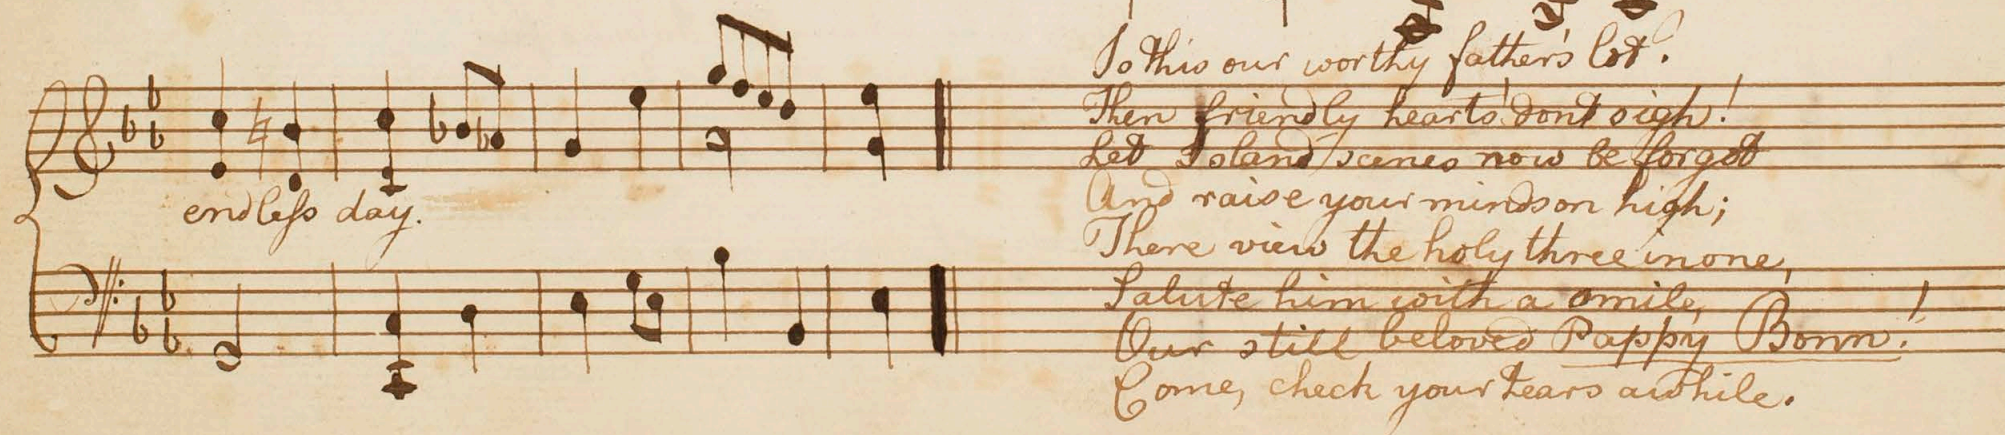 endless day.
Is this our worthy father's lot?
Then friendly hearts! don't sigh!
Let Island scenes now be forgot
And raise your minds on high;
There view the holy three in one,
Salute him with a smile,
Our still beloved Pappy Bonn!
Come, check your tears awhile.